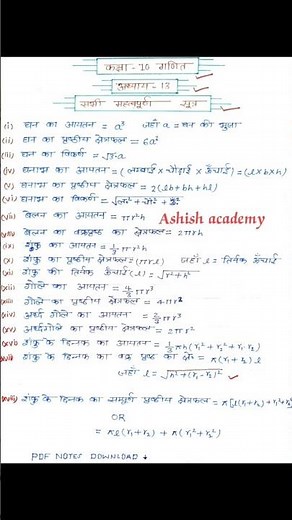 कक्षा-10 गणित
अध्याय-13
सभी महत्वपूर्ण सूत्र
(i) घन का आयतन = a³ जहाँ a = घन की भुजा
(ii) घन का पृष्ठीय क्षेत्रफल = 6a²
(iii) घन का विकर्ण = √3·a
(iv) घनाभ का आयतन = (लम्बाई x चौड़ाई x ऊँचाई) = (l x b x h)
(v) घनाभ का पृष्ठीय क्षेत्रफल = 2(lb+bh+hl)
(vi) घनाभ का विकर्ण =
(vii) बेलन का आयतन = πr²h
(viii) बेलन का वक्रपृष्ठ का क्षेत्रफल = 2πrh
Ashish academy
(ix) शंकु का आयतन = 1/3 πr²h
(x) शंकु का पृष्ठीय क्षेत्रफल = (πrl) जहाँ l = तिर्यक ऊँचाई
(xi) शंकु की तिर्यक ऊँचाई (l) = √r²+h²
(xiii) गोले का आयतन = 4/3 πr³
(xiii) गोले का पृष्ठीय क्षेत्रफल = 4πr²
(xiv) अर्द्ध गोले का आयतन = 2/3 πr³
(xv) अर्द्धगोले का पृष्ठीय क्षेत्रफल = 2πr²
(xvi) शंकु के छिन्नक का आयतन = 1/3 πh(r₁²+r₂²+r₁r₂)
(xvii) शंकु के छिन्नक का वक्र पृष्ठ का क्षे० = π(r₁+r₂)l
जहाँ l = √h²+(r₁-r₂)²
(xviii) शंकु के छिन्नक का सम्पूर्ण पृष्ठीय क्षेत्रफल = π[l(r₁+r₂)+r₁²+r₂²]
OR
= πl(r₁+r₂) + π(r₁²+r₂²)
PDF NOTES DOWNLOAD ↓